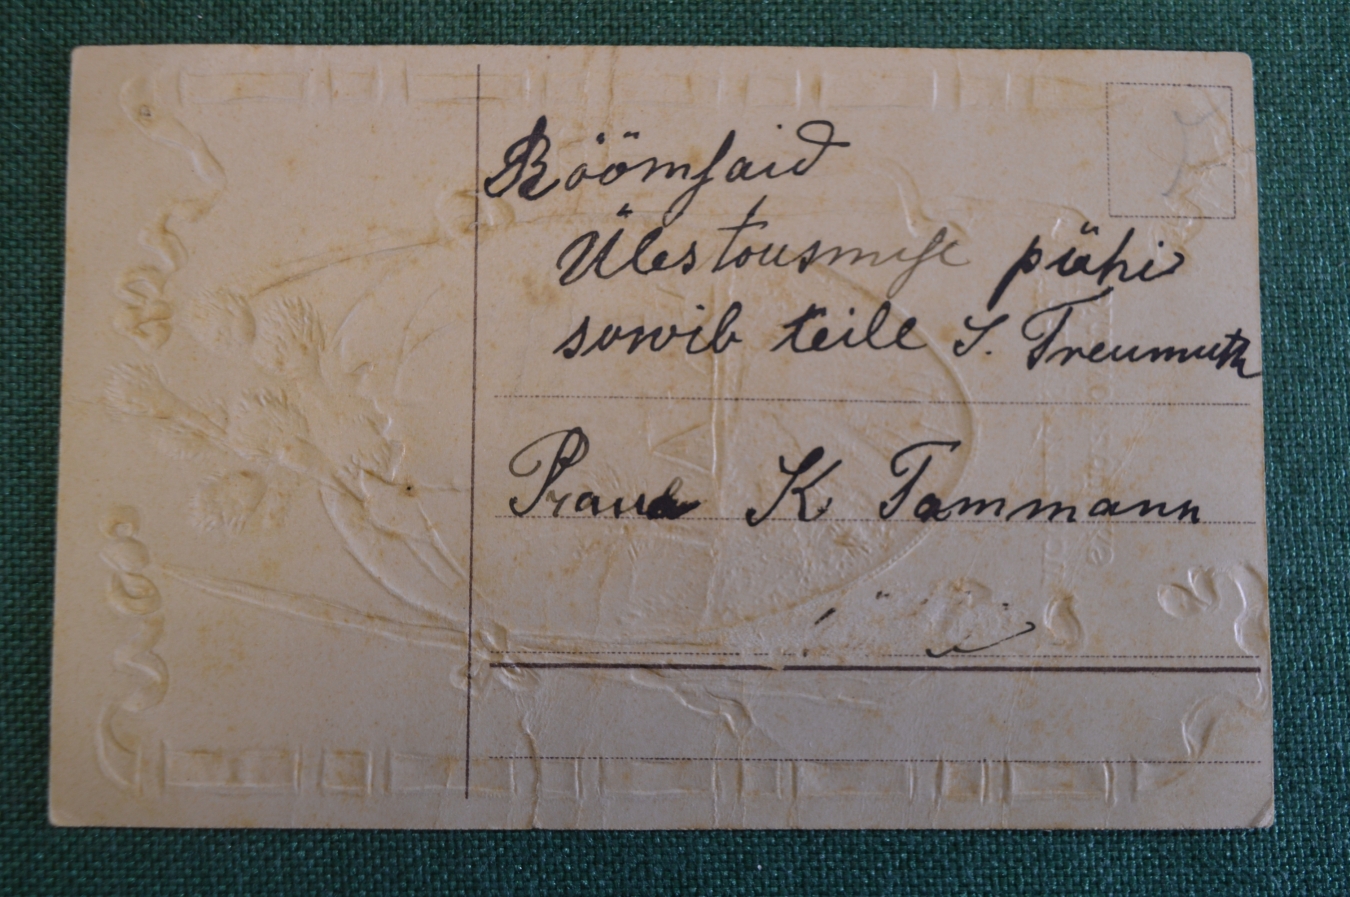 Röömsaid
Ülestousmise pühi
sowib teile S. Treumuth
Praua K Tammann